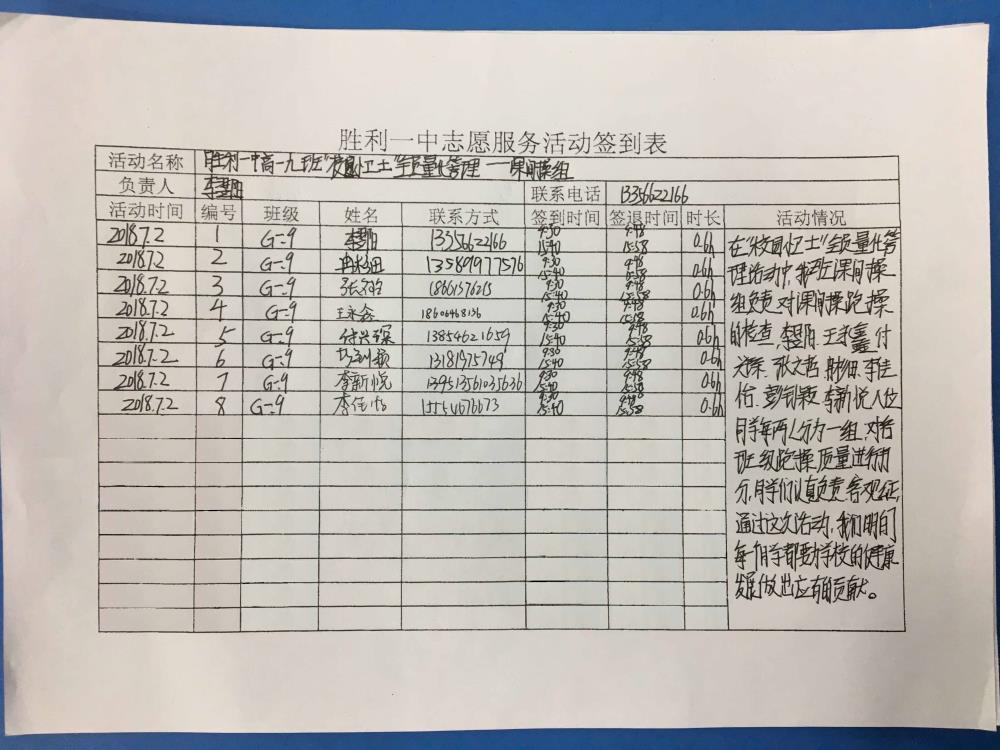 胜利一中志愿服务活动签到表
活动名称 胜利一中高一九班"校园卫士"全质量化管理——课间操组
负责人 李 阳 联系电话 13356622166
活动时间 编号 班级 姓名 联系方式 签到时间 签退时间 时长 活动情况
2018.7.2 1 G=.9 李 阳 13356622166 9:30 15:40 9:48 15:58 0.6h
2018.7.2 2 G=.9 13589977576 9:30 15:40 9:48 15:58 0.6h
2018.7.2 3 G=.9 张 18661576215 9:30 15:40 9:48 15:58 0.6h
2018.7.2 4 G=.9 王永鑫 18606468136 9:30 15:40 9:48 15:58 0.6h
2018.7.2 5 G=.9 付兴琛 13854621659 9:30 15:40 9:48 15:58 0.6h
2018.7.2 6 G=.9 13181975749 9:30 15:40 9:48 15:58 0.6h
2018.7.2 7 G=.9 李新悦 139513561035636 9:30 15:40 9:48 15:58 0.6h
2018.7.2 8 G=.9 李佳怡 15554676673 9:30 15:40 9:48 15:58 0.6h
在"校园卫士"全质量化管
理活动中,我班课间操
组负责对课间操跑操
的检查,李 阳、王永鑫、付
兴琛、张文哲、 、李佳
怡、彭钊颖、李新悦八位
同学每两人分为一组,对各
班级跑操质量进行打
分,同学们认真负责,客观公正,
通过这次活动,我们明白
每个同学都要为学校的健康
发展做出应有的贡献。